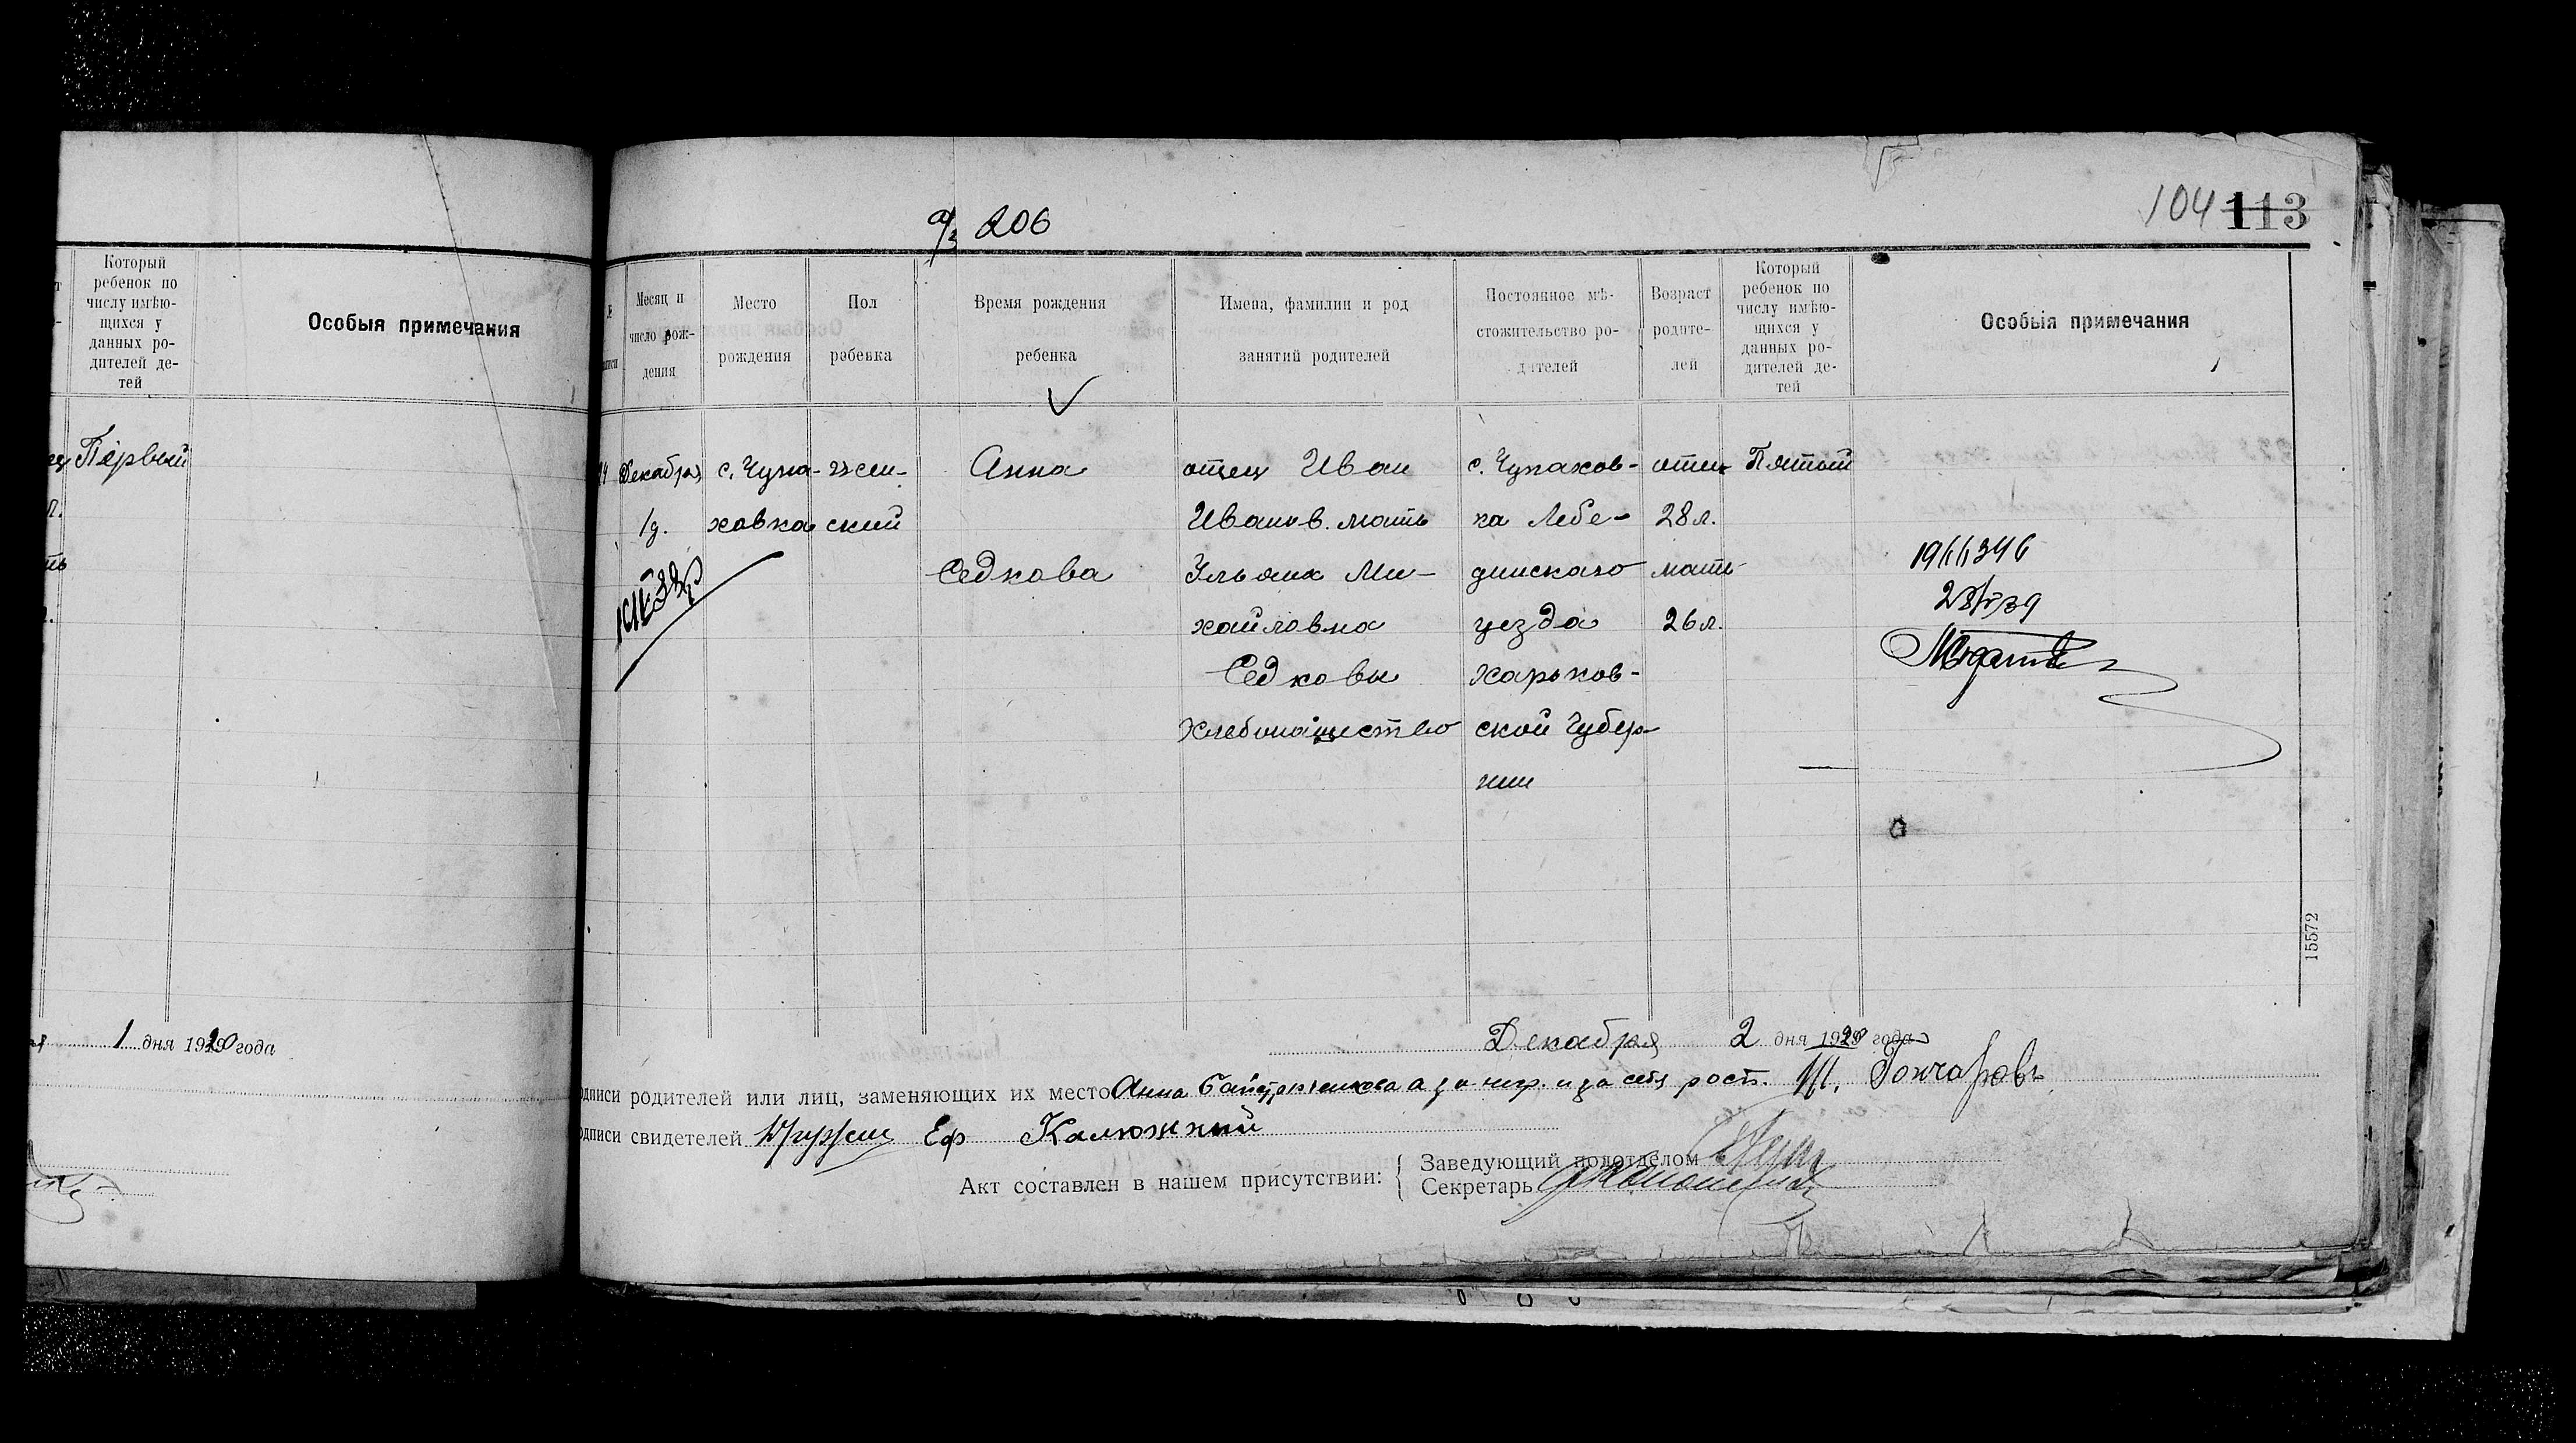 104 113
а/з 206
Который
ребенок по
числу имѣю-
щихся у
данных ро-
дителей де-
тей
Особыя примечания
Первый
1 дня 1920 года
Месяц и
число рож-
дения
Место
рождения
Пол
ребенка
Время рождения
ребенка
Имена, фамилии и род
занятий родителей
Постоянное мѣ-
стожительство ро-
дителей
Возраст
родите-
лей
Который
ребенок по
числу имѣю-
щихся у
данных ро-
дителей де-
тей
Особыя примечания
Декабря
1д.
с. Чупа-
ховка
жен-
ский
Анна
Седкова
отец Иван
Иванов. мать
Ульяна Ми-
хайловна
Седковы
Хлебопашество
с. Чупахов-
ка Лебе-
динскаго
уезда
Харьков-
ской Губер-
нии
отец
28 л.
мать
26 л.
Пятый
28/V/39
15572
Декабря 2 дня 1920 года
одписи родителей или лиц, заменяющих их место Анна а за негр. и за себя росп. Гончаровъ
одписи свидетелей Еф Калюжный
Акт составлен в нашем присутствии:
Заведующий подотделом
Секретарь